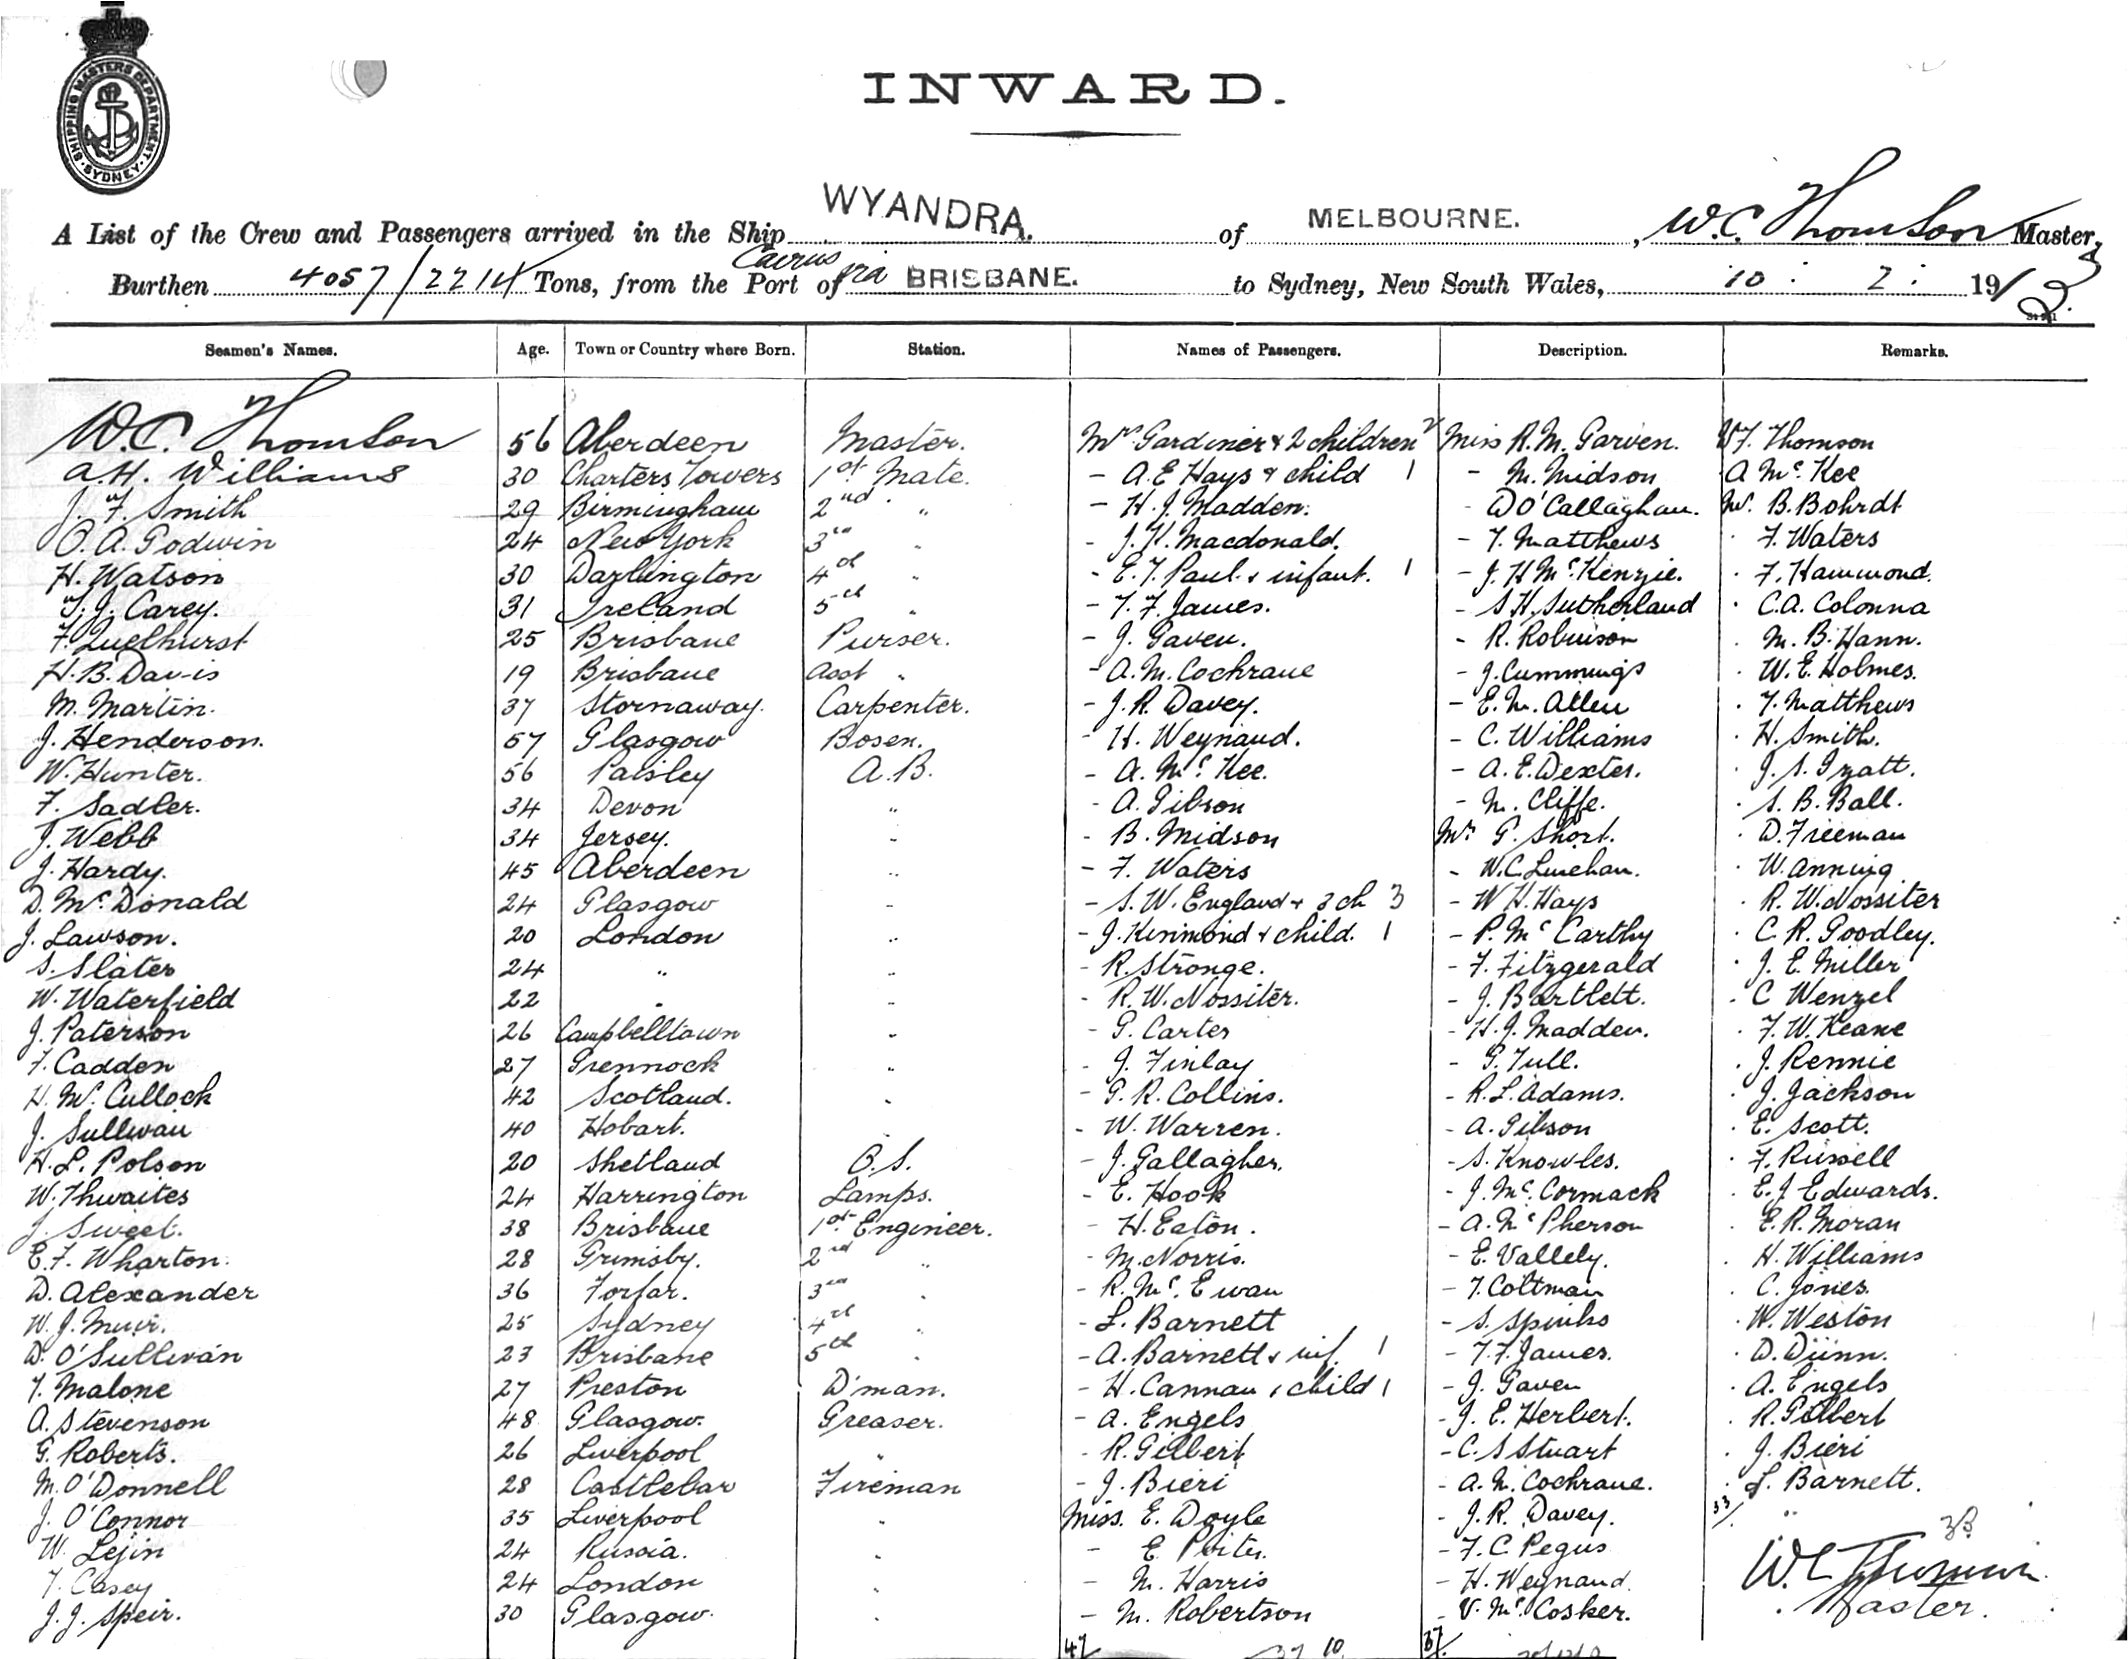 SHIPPING MASTERS DEPARTMENT · SYDNEY ·
INWARD.
A List of the Crew and Passengers arrived in the Ship WYANDRA. of MELBOURNE. , W.C. Thomson Master,
Burthen 4057/2214 Tons, from the Port of Cairns via BRISBANE. to Sydney, New South Wales, 10 : 2 : 1913.
Seamen's Names. Age. Town or Country where Born. Station. Names of Passengers. Description. Remarks.
W.C. Thomson 56 Aberdeen Master. Mrs Gardiner & 2 children 2 Miss R. M. Garven. F. Thomson
A.H. Williams 30 Charters Towers 1st Mate. - A. E Hays & child 1 - M. Midson A Mc Kee
J. F. Smith 29 Birmingham 2nd " - H. J. Madden. - D O'Callaghan. W. B. Bohrdt
O. A. Godwin 24 New York 3rd " - J. H. Macdonald. - T. Matthews · F. Waters
H. Watson 30 Darlington 4th " - E. T. Paul & infant. 1 - J. H Mc Kenzie. · F. Hammond.
T. J. Carey. 31 Ireland 5th " - T. F. James. - S H. Sutherland · C. A. Colonna
F. Luelhurst 25 Brisbane Purser. - J. Gaven. - R. Robinson · M. B. Hann.
H. B. Davis 19 Brisbane Asst " - A. M. Cochrane - J. Cummings · W. E. Holmes.
M. Martin. 37 Stornaway. Carpenter. - J. R. Davey. - E. M. Allen · T. Matthews
J. Henderson. 57 Glasgow Bosen. - H. Weynand. - C. Williams · H. Smith.
W. Hunter. 56 Paisley A. B. - A. Mc Kee. - A. E. Dexter. · J. S. Pratt.
F. Sadler. 34 Devon " - A. Gibson - M. Cliffe. · S. B. Ball.
J. Webb 34 Jersey. " - B. Midson Mr G. Short. · D. Freeman
J. Hardy. 45 Aberdeen " - F. Waters - W. C. Linehan. · W. Anning
D. Mc Donald 24 Glasgow " - S. W. England & 3 ch 3 - W H. Hays · R. W. Nossiter
J. Lawson. 20 London " - J. Kinmond & child. 1 - P. Mc Carthy · C. R. Goodley.
S. Slater 24 " " - R. Stronge. - F. Fitzgerald · J. E. Miller
W. Waterfield 22 " " - R. W. Nossiter. - J. Bartlett. · C Wenzel
J. Paterson 26 Campbelltown " - G. Carter - H. J. Madden. · F. W. Keane
F. Cadden 27 Grennock " - J. Finlay - G. Tull. · J. Rennie
H. Mc Cullock 42 Scotland. " - G. R. Collins. - R. L. Adams. · J. Jackson
J. Sullivan 40 Hobart. " - W. Warren. - A. Gibson · E. Scott.
H. L. Polson 20 Shetland O. S. - J. Gallagher. - S. Knowles. · F. Russell
W. Thwaites 24 Harrington Lamps. - E. Hook - J. Mc Cormack · E. J Edwards.
J. Sweet. 38 Brisbane 1st Engineer. - H. Eaton. - A. Mc Pherson · E. R. Moran
E. F. Wharton. 28 Grimsby. 2nd " - M. Norris. - E. Vallely. · H. Williams
D. Alexander 36 Forfar. 3rd " - R. Mc Ewan - T. Coltman · C. Jones.
W. J. Muir. 25 Sydney 4th " - L. Barnett - S. Spinks · W. Weston
D. O'Sullivan 23 Brisbane 5th " - A. Barnett & inf. 1 - T. F. James. · D. Dunn.
T. Malone 27 Preston D'man. - H. Cannan & child 1 - J. Gaven · A. Engels
A. Stevenson 48 Glasgow. Greaser. - A. Engels - J. E. Herbert. · R. Gilbert
G. Roberts. 26 Liverpool " - R. Gilbert - C. S Stuart · J. Bieri
M. O'Donnell 28 Castlebar Fireman - J. Bieri - A. M. Cochrane. · L. Barnett.
J. O'Connor 35 Liverpool " Miss. E. Doyle - J. R. Davey. 33/ "
W. Lejin 24 Russia. " - E. - F. C. Pegus 33
T. Casey 24 London " - M. Harris - H. Weynand. W.C. Thomson
J. J. Speir. 30 Glasgow. " - M. Robertson - V. Mc Cosker. Master.
47/ 37 10 37/